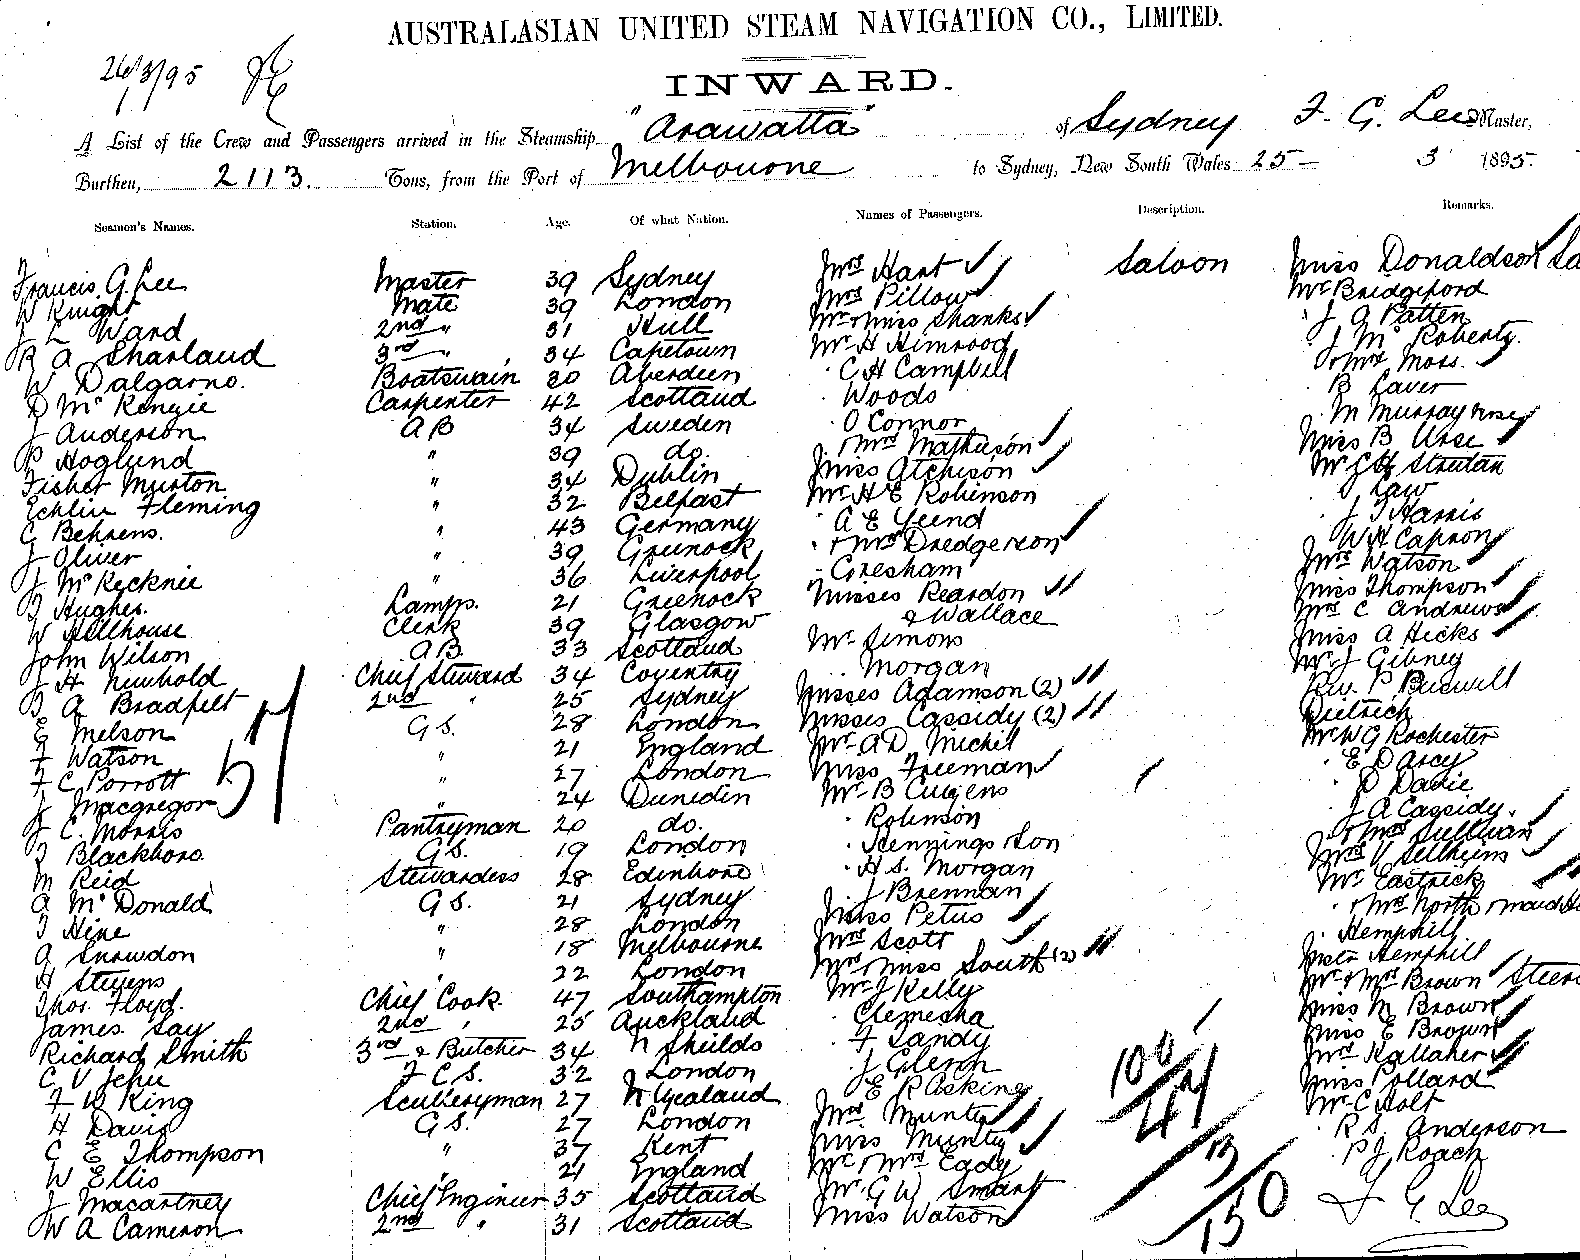 AUSTRALASIAN UNITED STEAM NAVIGATION CO., LIMITED.
26/3/95
INWARD.
A List of the Crew and Passengers arrived in the Steamship "Arawatta" of Sydney F. G. Lee Master,
Burthen, 2113. Tons, from the Port of Melbourne to Sydney, New South Wales 25 - 3 1895.
Seamen's Names. Station. Age. Of what Nation. Names of Passengers. Description. Remarks.
Francis G. Lee Master 39 Sydney Mrs Hart Saloon Miss Donaldson
W Knight Mate 39 London Mrs Pillow Mr Bridgeford
J L Ward 2nd " 31 Hull Mr & Miss Shanks J A Patten
R A Sharland 3rd " 34 Capetown Mr H Himrood J Mc Roberty
W Dalgarno. Boatswain 30 Aberdeen C H Campbell & Mrs Moss.
D McKenzie Carpenter 42 Scotland Woods B Laver
J Anderson AB 34 Sweden O Connor M Murray
P Hoglund " 39 do. & Mrs Matheson Miss B Urse
Fisher Murton " 34 Dublin Miss Atchison Mr
Echlin Fleming " 32 Belfast Mr H E Robinson Law
C Behrens. " 43 Germany A E Yeend J T Harris
J Oliver " 39 Greenock & Mrs Dredgerson W H Capron
J McKecknie " 36 Liverpool Gresham Mrs Watson
J Hughes. Lamps. 21 Greenock Misses Reardon Miss Thompson
W Hillhouse Clerk 39 Glasgow & Wallace Mrs C Andrews
John Wilson AB 33 Scotland Mr Simons Miss A Hicks
J H Newbold Chief Steward 34 Coventry Morgan Mr J Gibney
T A Bradfelt 2nd " 25 Sydney Misses Adamson (2) Rev. P Buswell
E Melson G S. 28 London Misses Cassidy (2) Dietrich
F Watson " 21 England Mr A D Michel Mr W G Rochester
F C Porrott " 27 London Miss Freeman E Darcy
J Macgregor " 24 Dunedin Mr B Cussens D Davie
J C. Morris Pantryman 20 do. Robinson J A Cassidy.
J Blackboro. G S. 19 London Jennings & Son & Mrs Sullivan
M Reid Stewardess 28 Edinboro H S. Morgan Mrs V Sellheim
A McDonald G S. 21 Sydney J Brennan Mr Eastrick
J Hine " 28 London Miss Petus & Mrs North & maid
A Snowdon " 18 Melbourne Mrs Scott Hemphill
H Stevens 22 London Mrs & Miss South (2) Hemphill
Thos. Floyd. Chief Cook. 47 Southampton Mr J Kelly Mr & Mrs Brown
James Lay 2nd " 25 Auckland Clemesha Miss M Brown
Richard Smith 3rd & Butcher 34 N Shields F Landy Miss E Brown
C V Jehu F C S. 32 London J Glenn Mrs Kallaher
F W King Sculleryman 27 N Zealand E R Asking Miss Pollard
H Davis G S. 27 London Mrs Munty Mr C Holt
C E Thompson " 37 Kent Miss Munty R S. Anderson
W Ellis " 21 England Mr & Mrs Eady P J Roach
J Macartney Chief Engineer 35 Scotland Mr G W Smart
W A Cameron 2nd " 31 Scotland Miss Watson F G. Lee